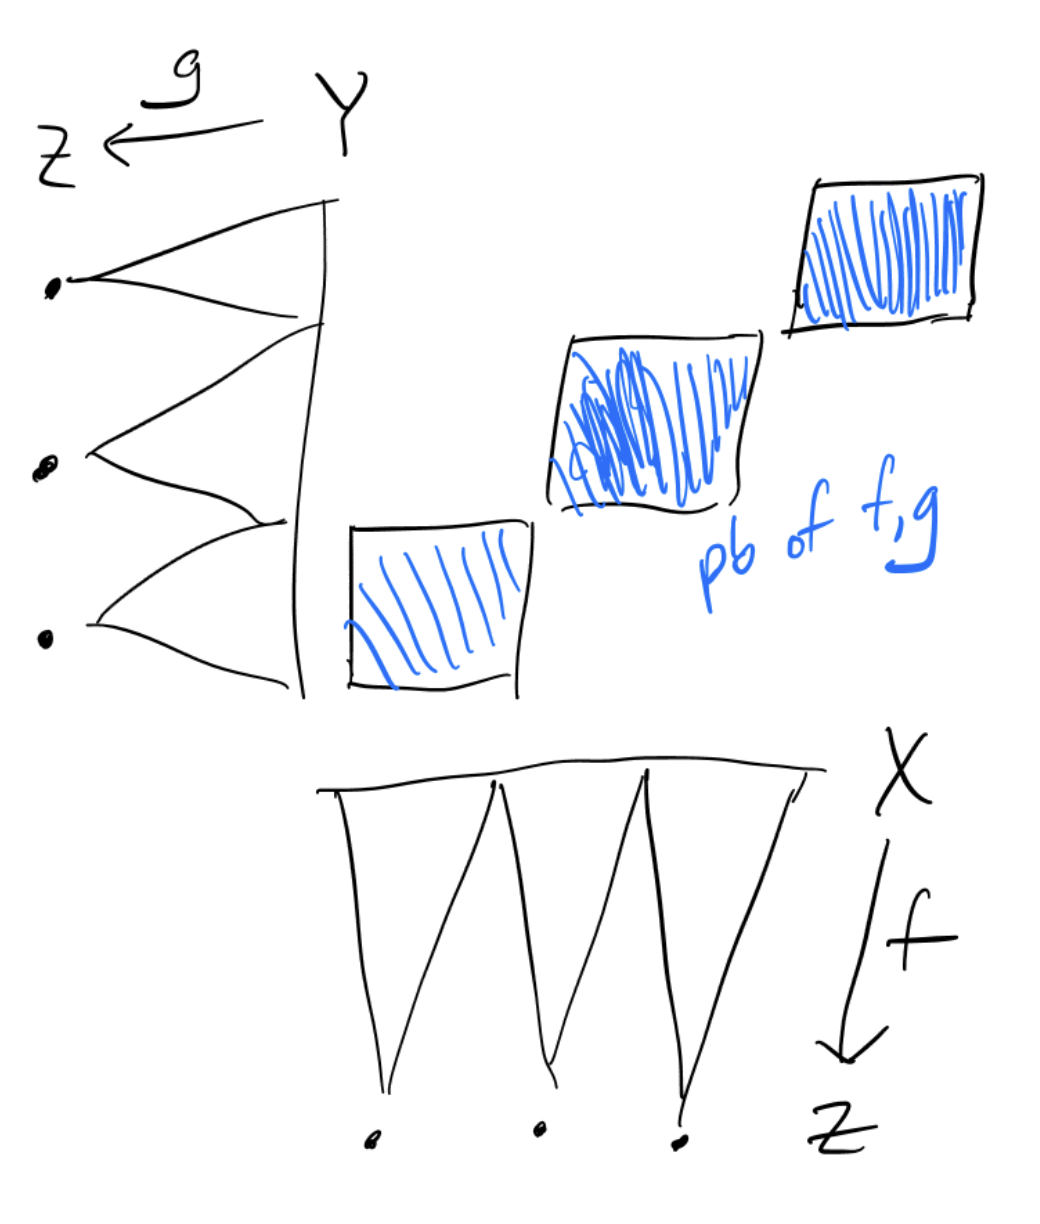 g
Z Y
pb of f,g
X
f
Z